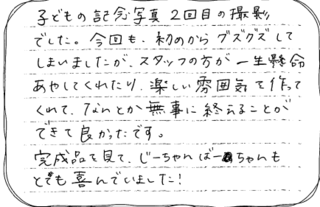 子どもの記念写真2回目の撮影
でした。今回も、初めからグズグズして
しまいましたが、スタッフの方が一生懸命
あやしてくれたり、楽しい雰囲気を作って
くれて、なんとか無事に終えることが
できて良かったです。
完成品を見て、じーちゃんばーちゃんも
とても喜んでいました!